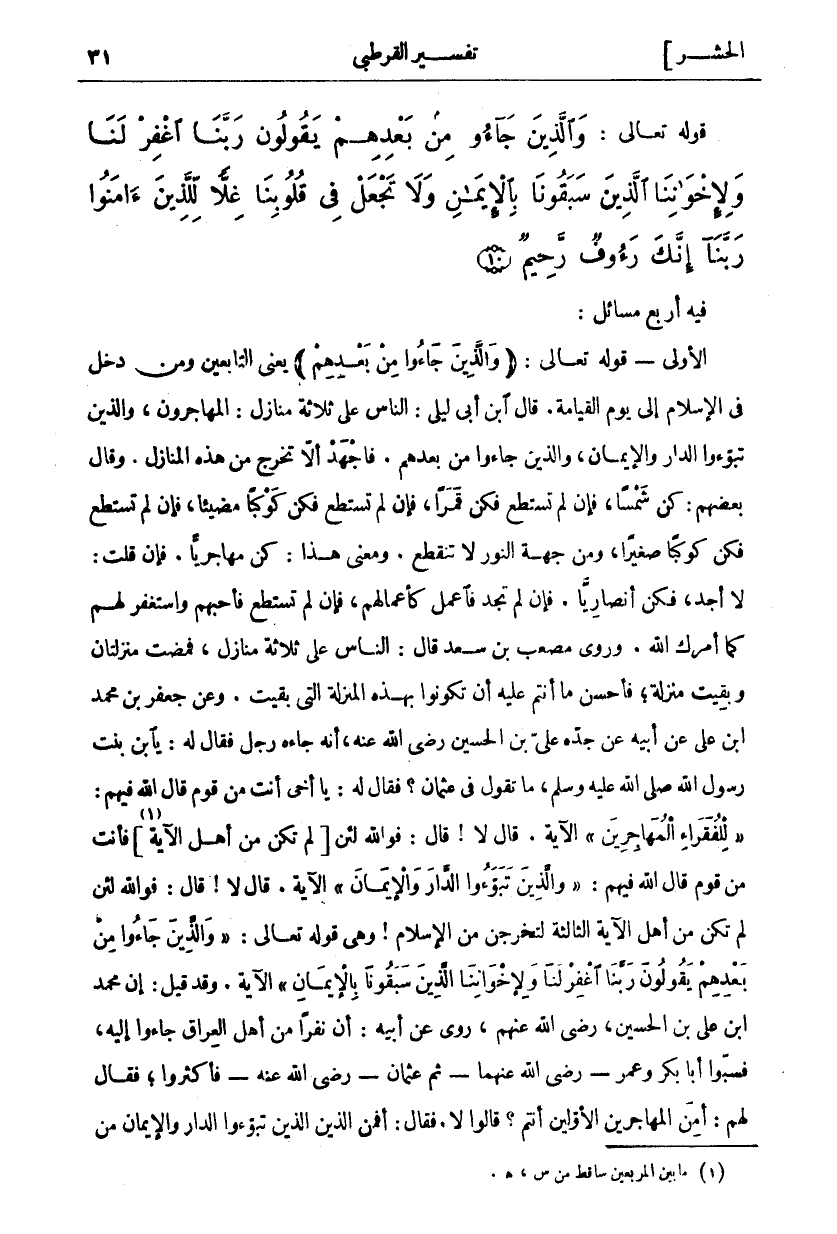 الحشر ] تفسير القرطبي ٣١
قوله تعالى : وَٱلَّذِينَ جَآءُو مِنۢ بَعْدِهِمْ يَقُولُونَ رَبَّنَا ٱغْفِرْ لَنَا
وَلِإِخْوَٰنِنَا ٱلَّذِينَ سَبَقُونَا بِٱلْإِيمَـٰنِ وَلَا تَجْعَلْ فِى قُلُوبِنَا غِلًّا لِّلَّذِينَ ءَامَنُوا
رَبَّنَآ إِنَّكَ رَءُوفٌ رَّحِيمٌ ١٠
فيه أربع مسائل :
الأولى — قوله تعالى : ﴿ وَالَّذِينَ جَاءُوا مِنْ بَعْدِهِمْ ﴾ يعنى التابعين ومن دخل
فى الإسلام إلى يوم القيامة . قال ٱبن أبى ليلى : الناس على ثلاثة منازل : المهاجرون ، والذين
تبوّءوا الدار والإيمان ، والذين جاءوا من بعدهم . فاجْهَدْ ألّا تخرج من هذه المنازل . وقال
بعضهم : كن شَمْسًا ، فإن لم تستطع فكن قَمَرًا ، فإن لم تستطع فكن كوْكبًا مضيئا ، فإن لم تستطع
فكن كوكبًا صغيرًا ، ومن جهة النور لا تنقطع . ومعنى هذا : كن مهاجريًّا . فإن قلت :
لا أجد ، فكن أنصاريًّا . فإن لم تجد فٱعمل كأعمالهم ، فإن لم تستطع فأحبهم واستغفر لهم
كما أمرك الله . وروى مصعب بن سعد قال : الناس على ثلاثة منازل ، فمضت منزلتان
وبقيت منزلة ؛ فأحسن ما أنتم عليه أن تكونوا بهذه المنزلة التى بقيت . وعن جعفر بن محمد
ابن على عن أبيه عن جدّه علىّ بن الحسين رضى الله عنه ، أنه جاءه رجل فقال له : يٱبن بنت
رسول الله صلى الله عليه وسلم ، ما تقول فى عثمان ؟ فقال له : يا أخى أنت من قوم قال الله فيهم :
« لِلْفُقَرَاءِ الْمُهَاجِرِينَ » الآية . قال لا ! قال : فوالله لئن [ لم تكن من أهل الآية ] (١) فأنت
من قوم قال الله فيهم : « والَّذِينَ تَبَوَّءُوا الدَّارَ وَالْإِيمَانَ » الآية . قال لا ! قال : فوالله لئن
لم تكن من أهل الآية الثالثة لتخرجن من الإسلام ! وهى قوله تعالى : « وَالَّذِينَ جَاءُوا مِنْ
بَعْدِهِمْ يَقُولُونَ رَبَّنَا ٱغْفِرْ لَنَا وَلِإِخْوَانِنَا الَّذِينَ سَبَقُونَا بِالْإِيمَانِ » الآية . وقد قيل : إن محمد
ابن على بن الحسين ، رضى الله عنهم ، روى عن أبيه : أن نفرًا من أهل العراق جاءوا إليه ،
فسبّوا أبا بكر وعمر — رضى الله عنهما — ثم عثمان — رضى الله عنه — فأكثروا ؛ فقال
لهم : أمِنَ المهاجرين الأوّلين أنتم ؟ قالوا لا . فقال : أفمن الذين تبوّءوا الدار والإيمان من
(١) ما بين المربعين ساقط من س ، ﻫ .